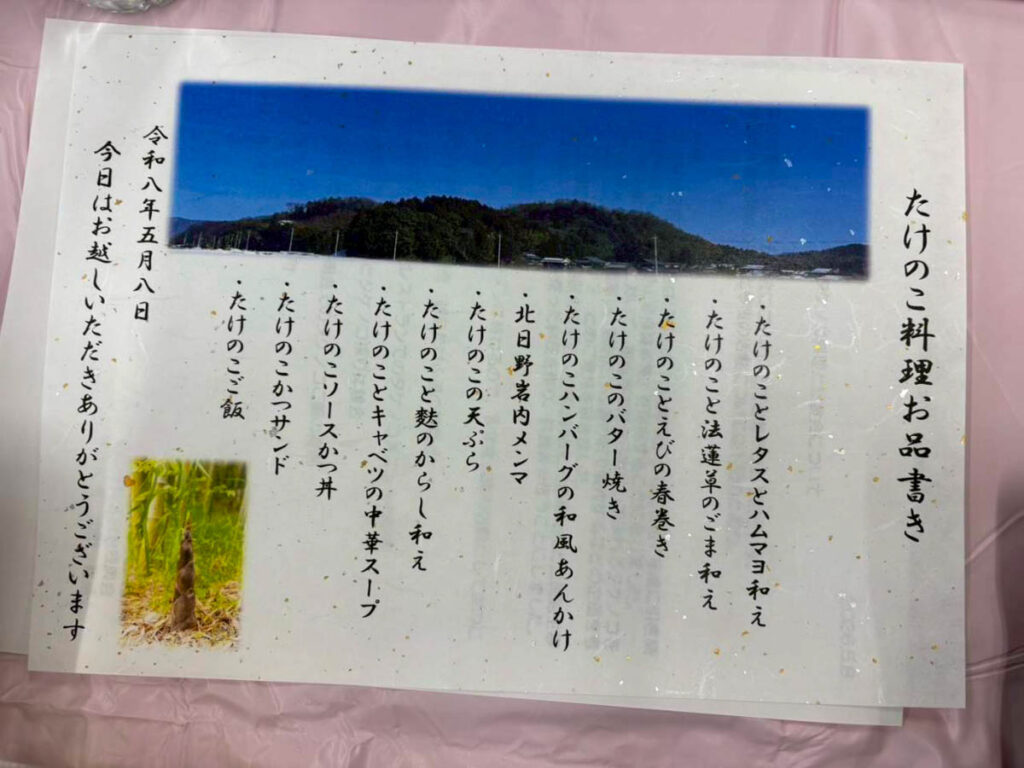 たけのこ料理お品書き
・たけのことレタスとハムマヨ和え
・たけのこと法蓮草のごま和え
・たけのことえびの春巻き
・たけのこのバター焼き
・たけのこハンバーグの和風あんかけ
・北日野岩内メンマ
・たけのこの天ぷら
・たけのこと麩のからし和え
・たけのことキャベツの中華スープ
・たけのこソースかつ丼
・たけのこかつサンド
・たけのこご飯
令和八年五月八日
今日はお越しいただきありがとうございます